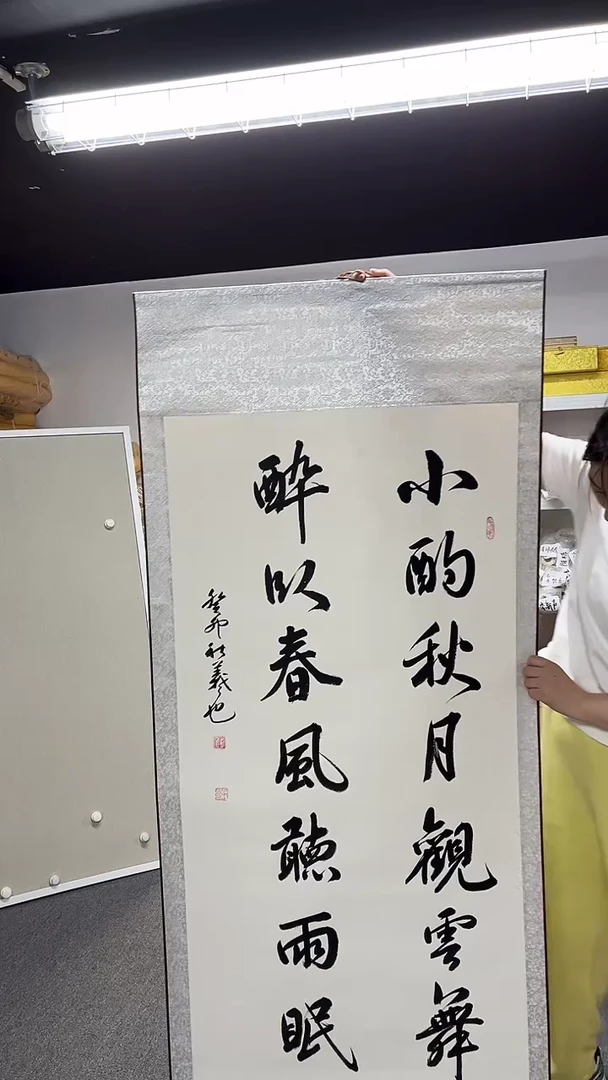 小酌秋月觀雲舞
醉臥春風聽雨眠
癸卯社義也